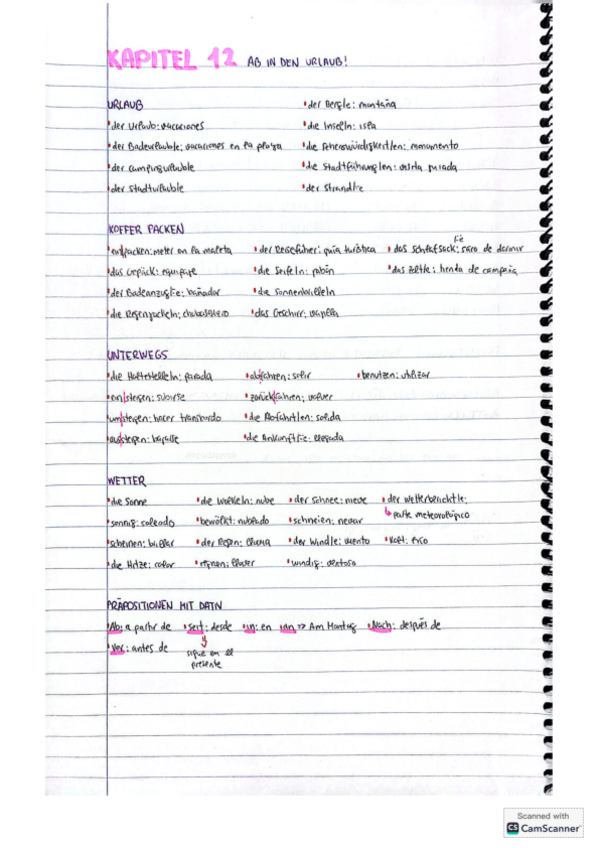 KAPITEL 12 AB IN DEN URLAUB!
URLAUB
der Urlaub: vacaciones
der Badeurlaub/e: vacaciones en la playa
der Campingurlaub/e
der Stadturlaub/e
der Berg/e: montaña
die Insel/n: isla
die Sehenswürdigkeit/en: monumento
die Stadtführung/en: visita guiada
der Strand/e
KOFFER PACKEN
packen: meter en la maleta
das Gepäck: equipaje
der Badeanzug/e: bañador
die Regenjacke/n: chubasquero
der Reiseführer: guía turística
die Seife/n: jabón
die Sonnenbrille/n
das Geschirr: vajilla
das Schlafsack: saco de dormir
das Zelt/e: tienda de campaña
UNTERWEGS
die Haltestelle/n: parada
ein/steigen: subirse
um/steigen: hacer transbordo
aus/steigen: bajarse
ab/fahren: salir
zurück/fahren: volver
die Abfahrt/en: salida
die Ankunft/e: llegada
benutzen: utilizar
WETTER
die Sonne
sonnig: soleado
scheinen: brillar
die Hitze: calor
die Wolke/n: nube
bewölkt: nublado
der Regen: lluvia
regnen: llover
der Schnee: nieve
schneien: nevar
der Wind/e: viento
windig: ventoso
der Wetterbericht/e:
parte meteorológico
kalt: frío
PRÄPOSITIONEN MIT DATIV
Ab: a partir de seit: desde in: en an => Am Montag Nach: después de
vor: antes de
sigue en el
presente
Scanned with
CS CamScanner